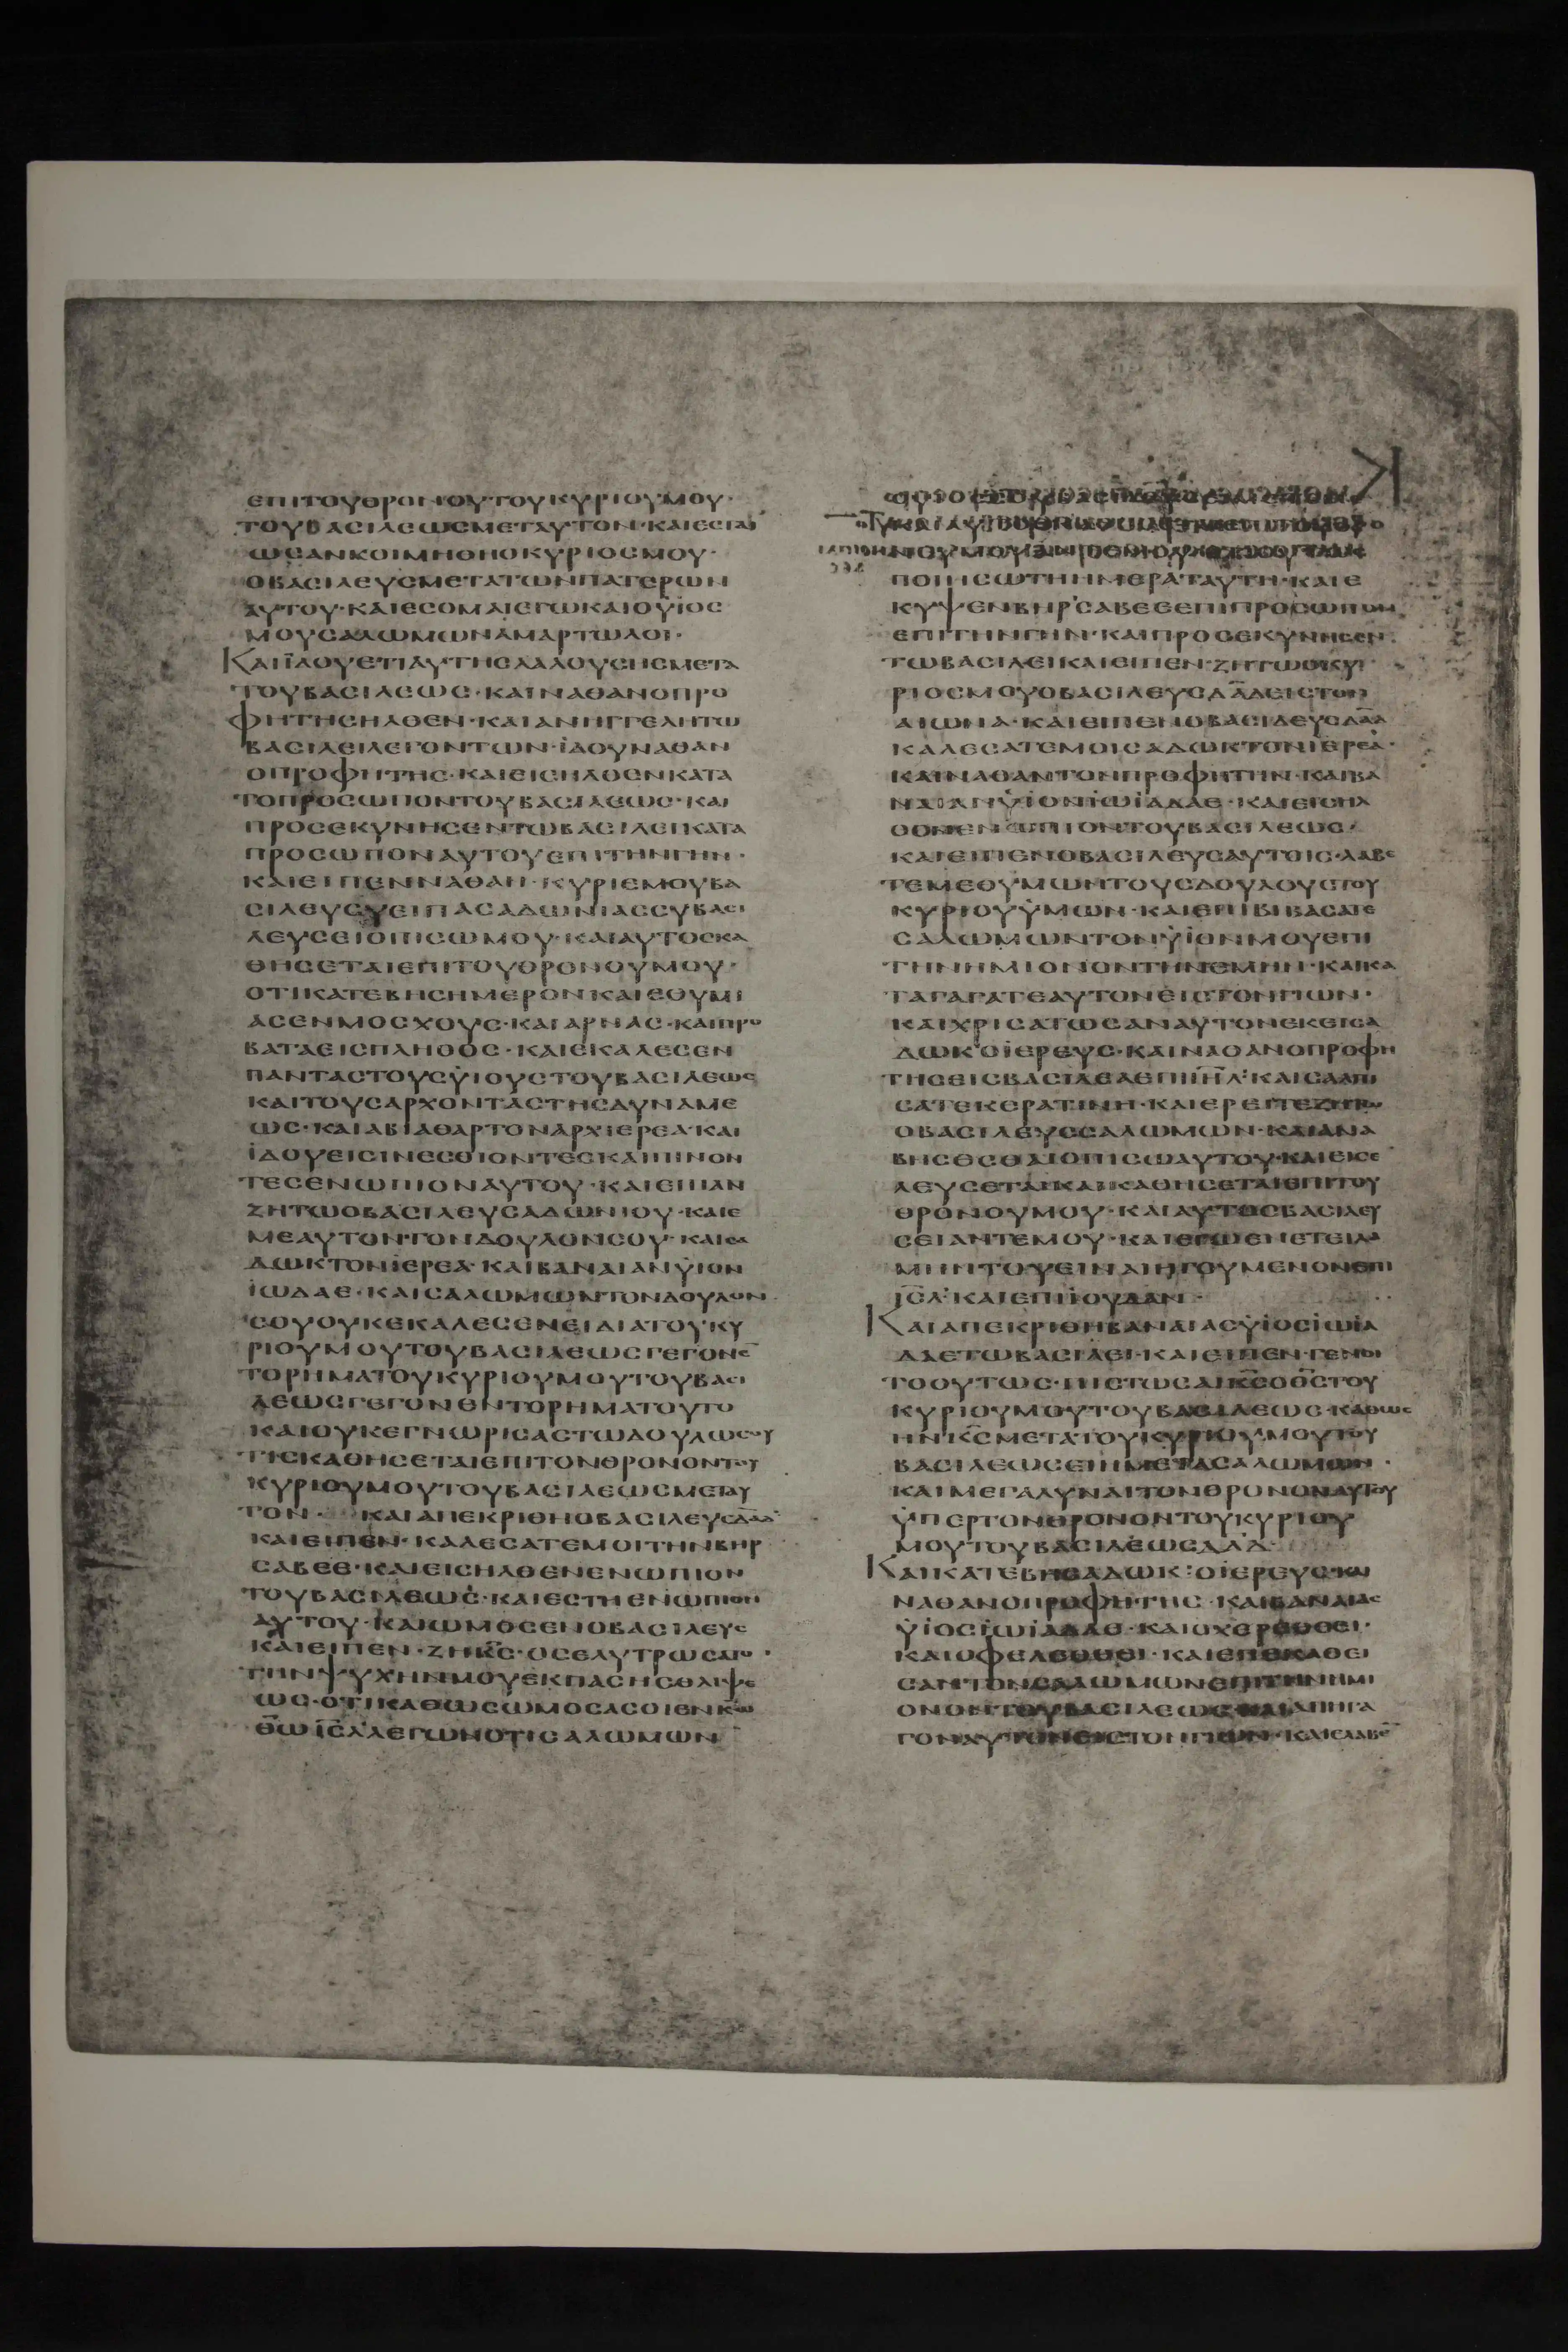 ΕΠΙΤΟΥΘΡΟΝΟΥΤΟΥΚΥΡΙΟΥΜΟΥ·
ΤΟΥΒΑϹΙΛΕΩϹΜΕΤΑΥΤΟΝ·ΚΑΙΕϹΤΑΙ
ΩϹΑΝΚΟΙΜΗΘΗΟΚΥΡΙΟϹΜΟΥ·
ΟΒΑϹΙΛΕΥϹΜΕΤΑΤΩΝΠΑΤΕΡΩΝ
ΑΥΤΟΥ·ΚΑΙΕϹΟΜΑΙΕΓΩΚΑΙΟΫΙΟϹ
ΜΟΥϹΑΛΩΜΩΝΑΜΑΡΤΩΛΟΙ·
ΚΑΙΪΔΟΥΕΤΙΑΥΤΗϹΛΑΛΟΥϹΗϹΜΕΤΑ
ΤΟΥΒΑϹΙΛΕΩϹ·ΚΑΙΝΑΘΑΝΟΠΡΟ
ΦΗΤΗϹΗΛΘΕΝ·ΚΑΙΑΝΗΓΓΕΛΗΤΩ
ΒΑϹΙΛΕΙΛΕΓΟΝΤΩΝ·ΪΔΟΥΝΑΘΑΝ
ΟΠΡΟΦΗΤΗϹ·ΚΑΙΕΙϹΗΛΘΕΝΚΑΤΑ
ΤΟΠΡΟϹΩΠΟΝΤΟΥΒΑϹΙΛΕΩϹ·ΚΑΙ
ΠΡΟϹΕΚΥΝΗϹΕΝΤΩΒΑϹΙΛΕΙΚΑΤΑ
ΠΡΟϹΩΠΟΝΑΥΤΟΥΕΠΙΤΗΝΓΗΝ·
ΚΑΙΕΙΠΕΝΝΑΘΑΝ·ΚΥΡΙΕΜΟΥΒΑ
ϹΙΛΕΥϹΥΕΙΠΑϹΑΔΩΝΙΑϹϹΥΒΑϹΙ
ΛΕΥϹΕΙΟΠΙϹΩΜΟΥ·ΚΑΙΑΥΤΟϹΚΑ
ΘΗϹΕΤΑΙΕΠΙΤΟΥΘΡΟΝΟΥΜΟΥ·
ΟΤΙΚΑΤΕΒΗϹΗΜΕΡΟΝΚΑΙΕΘΥΜΙ
ΑϹΕΝΜΟϹΧΟΥϹ·ΚΑΙΑΡΝΑϹ·ΚΑΙΠΡΟ
ΒΑΤΑΕΙϹΠΛΗΘΟϹ·ΚΑΙΕΚΑΛΕϹΕΝ
ΠΑΝΤΑϹΤΟΥϹΫΙΟΥϹΤΟΥΒΑϹΙΛΕΩϹ
ΚΑΙΤΟΥϹΑΡΧΟΝΤΑϹΤΗϹΔΥΝΑΜΕ
ΩϹ·ΚΑΙΑΒΙΑΘΑΡΤΟΝΑΡΧΙΕΡΕΑ·ΚΑΙ
ΪΔΟΥΕΙϹΙΝΕϹΘΙΟΝΤΕϹΚΑΙΠΙΝΟΝ
ΤΕϹΕΝΩΠΙΟΝΑΥΤΟΥ·ΚΑΙΕΙΠΑΝ
ΖΗΤΩΟΒΑϹΙΛΕΥϹΑΔΩΝΙΟΥ·ΚΑΙΕ
ΜΕΑΥΤΟΝΤΟΝΔΟΥΛΟΝϹΟΥ·ΚΑΙϹΑ
ΔΩΚΤΟΝΪΕΡΕΑ·ΚΑΙΒΑΝΑΙΑΝΫΙΟΝ
ΪΩΔΑΕ·ΚΑΙϹΑΛΩΜΩΝΤΟΝΔΟΥΛΟΝ
ϹΟΥΟΥΚΕΚΑΛΕϹΕΝΕΙΔΙΑΤΟΥΚΥ
ΡΙΟΥΜΟΥΤΟΥΒΑϹΙΛΕΩϹΓΕΓΟΝΕ̅
ΤΟΡΗΜΑΤΟΥΚΥΡΙΟΥΜΟΥΤΟΥΒΑϹΙ
ΛΕΩϹΓΕΓΟΝΕΝΤΟΡΗΜΑΤΟΥΤΟ
ΚΑΙΟΥΚΕΓΝΩΡΙϹΑϹΤΩΔΟΥΛΩϹΟΥ
ΤΙϹΚΑΘΗϹΕΤΑΙΕΠΙΤΟΝΘΡΟΝΟΝΤΟΥ
ΚΥΡΙΟΥΜΟΥΤΟΥΒΑϹΙΛΕΩϹΜΕΤΑΥ
ΤΟΝ· ΚΑΙΑΠΕΚΡΙΘΗΟΒΑϹΙΛΕΥϹΔΑ̅Δ̅
ΚΑΙΕΙΠΕΝ·ΚΑΛΕϹΑΤΕΜΟΙΤΗΝΒΗΡ
ϹΑΒΕΕ·ΚΑΙΕΙϹΗΛΘΕΝΕΝΩΠΙΟΝ
ΤΟΥΒΑϹΙΛΕΩϹ·ΚΑΙΕϹΤΗΕΝΩΠΙΟΝ
ΑΥΤΟΥ·ΚΑΙΩΜΟϹΕΝΟΒΑϹΙΛΕΥϹ
ΚΑΙΕΙΠΕΝ·ΖΗΚ̅Ϲ̅·ΟϹΕΛΥΤΡΩϹΑΤΟ
ΤΗΝΨΥΧΗΝΜΟΥΕΚΠΑϹΗϹΘΛΙΨΕ
ΩϹ·ΟΤΙΚΑΘΩϹΩΜΟϹΑϹΟΙΕΝΚ̅Ω̅
Θ̅Ω̅Ι̅Ϲ̅Λ̅ΛΕΓΩΝΟΤΙϹΑΛΩΜΩΝ
ΠΟΙΗϹΩΤΗΗΜΕΡΑΤΑΥΤΗ·ΚΑΙΕ
ΚΥΨΕΝΒΗΡϹΑΒΕΕΕΠΙΠΡΟϹΩΠΟΝ
ΕΠΙΤΗΝΓΗΝ·ΚΑΙΠΡΟϹΕΚΥΝΗϹΕΝ
ΤΩΒΑϹΙΛΕΙΚΑΙΕΙΠΕΝ·ΖΗΤΩΟΚΥ
ΡΙΟϹΜΟΥΟΒΑϹΙΛΕΥϹΔΑ̅Δ̅ΕΙϹΤΟΝ
ΑΙΩΝΑ·ΚΑΙΕΙΠΕΝΟΒΑϹΙΛΕΥϹΔΑ̅Δ̅
ΚΑΛΕϹΑΤΕΜΟΙϹΑΔΩΚΤΟΝΪΕΡΕΑ·
ΚΑΙΝΑΘΑΝΤΟΝΠΡΟΦΗΤΗΝ·ΚΑΙΒΑ
ΝΑΙΑΝΫΙΟΝΪΩΪΑΔΑΕ·ΚΑΙΕΙϹΗΛ
ΘΟΝΕΝΩΠΙΟΝΤΟΥΒΑϹΙΛΕΩϹ·
ΚΑΙΕΙΠΕΝΟΒΑϹΙΛΕΥϹΑΥΤΟΙϹ·ΛΑΒΕ
ΤΕΜΕΘΥΜΩΝΤΟΥϹΔΟΥΛΟΥϹΤΟΥ
ΚΥΡΙΟΥΫΜΩΝ·ΚΑΙΕΠΙΒΙΒΑϹΑΤΕ
ϹΑΛΩΜΩΝΤΟΝΫΙΟΝΜΟΥΕΠΙ
ΤΗΝΗΜΙΟΝΟΝΤΗΝΕΜΗΝ·ΚΑΙΚΑ
ΤΑΓΑΓΑΤΕΑΥΤΟΝΕΙϹΤΟΝΓΙΩΝ·
ΚΑΙΧΡΙϹΑΤΩϹΑΝΑΥΤΟΝΕΚΕΙϹΑ
ΔΩΚ·ΟΪΕΡΕΥϹ·ΚΑΙΝΑΘΑΝΟΠΡΟΦΗ
ΤΗϹΕΙϹΒΑϹΙΛΕΑΕΠΙΙ̅Η̅Λ̅·ΚΑΙϹΑΛΠΙ
ϹΑΤΕΚΕΡΑΤΙΝΗ·ΚΑΙΕΡΕΙΤΕΖΗΤΩ
ΟΒΑϹΙΛΕΥϹϹΑΛΩΜΩΝ·ΚΑΙΑΝΑ
ΒΗϹΕϹΘΑΙΟΠΙϹΩΑΥΤΟΥ·ΚΑΙΕΙϹΕ
ΛΕΥϹΕΤΑΙΚΑΙΚΑΘΗϹΕΤΑΙΕΠΙΤΟΥ
ΘΡΟΝΟΥΜΟΥ·ΚΑΙΑΥΤΟϹΒΑϹΙΛΕΥ
ϹΕΙΑΝΤΕΜΟΥ·ΚΑΙΕΓΩΕΝΕΤΕΙΛΑ
ΜΗΝΤΟΥΕΙΝΑΙΗΓΟΥΜΕΝΟΝΕΠΙ
Ι̅Ϲ̅Λ̅·ΚΑΙΕΠΙΪΟΥΔΑΝ·
ΚΑΙΑΠΕΚΡΙΘΗΒΑΝΑΙΑϹΫΙΟϹΪΩΪΑ
ΔΑΕΤΩΒΑϹΙΛΕΙ·ΚΑΙΕΙΠΕΝ·ΓΕΝΟΙ
ΤΟΟΥΤΩϹ·ΠΙϹΤΩϹΑΙΚ̅Ϲ̅ΟΘ̅Ϲ̅ΤΟΥ
ΚΥΡΙΟΥΜΟΥΤΟΥΒΑϹΙΛΕΩϹ·ΚΑΘΩϹ
ΗΝΚ̅Ϲ̅ΜΕΤΑΤΟΥΚΥΡΙΟΥΜΟΥΤΟΥ
ΒΑϹΙΛΕΩϹΕΙΗΜΕΤΑϹΑΛΩΜΩΝ·
ΚΑΙΜΕΓΑΛΥΝΑΙΤΟΝΘΡΟΝΟΝΑΥΤΟΥ
ΫΠΕΡΤΟΝΘΡΟΝΟΝΤΟΥΚΥΡΙΟΥ
ΜΟΥΤΟΥΒΑϹΙΛΕΩϹΔΑ̅Δ̅·
ΚΑΙΚΑΤΕΒΗϹΑΔΩΚ:ΟΪΕΡΕΥϹ·ΚΑΙ
ΝΑΘΑΝΟΠΡΟΦΗΤΗϹ·ΚΑΙΒΑΝΑΙΑϹ
ΫΙΟϹΪΩΪΑΔΑΕ·ΚΑΙΟΧΕΡΕΘΘΕΙ·
ΚΑΙΟΦΕΛΕΘΘΕΙ·ΚΑΙΕΠΕΚΑΘΕΙ
ϹΑΝΤΟΝϹΑΛΩΜΩΝΕΠΙΤΗΝΗΜΙ
ΟΝΟΝΤΟΥΒΑϹΙΛΕΩϹ·ΚΑΙΑΠΗΓΑ
ΓΟΝΑΥΤΟΝΕΙϹΤΟΝΓΙΩΝ·ΚΑΙΕΛΑΒΕ̅